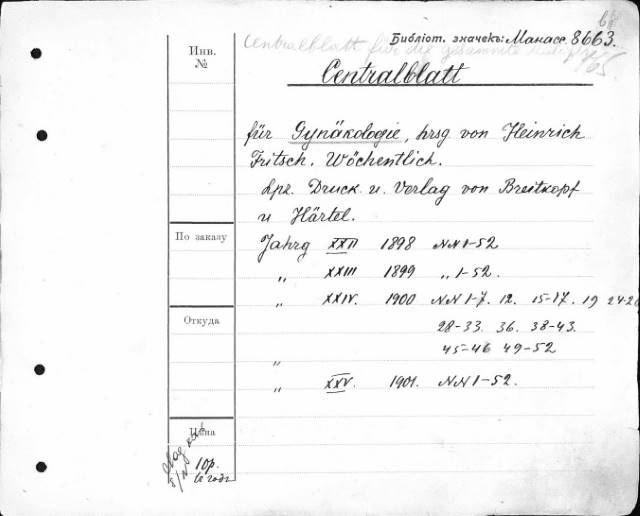 Библіот. значекъ: Манасс. 8663.
Инв.
№
Centralblatt für die gesammte
Centralblatt
für Gynäkologie, hrsg von Heinrich
Fritsch. Wöchentlich.
Lpz. Druck u. Verlag von Breitkopf
u Härtel.
По заказу
Jahrg XXII 1898 NN 1-52
„ XXIII 1899 „ 1-52.
„ XXIV. 1900 NN 1-7. 12. 15-17. 19 24-26
Откуда
28-33. 36. 38-43.
45-46 49-52
„
„ XXV. 1901. NN 1-52.
Цѣна
10р.